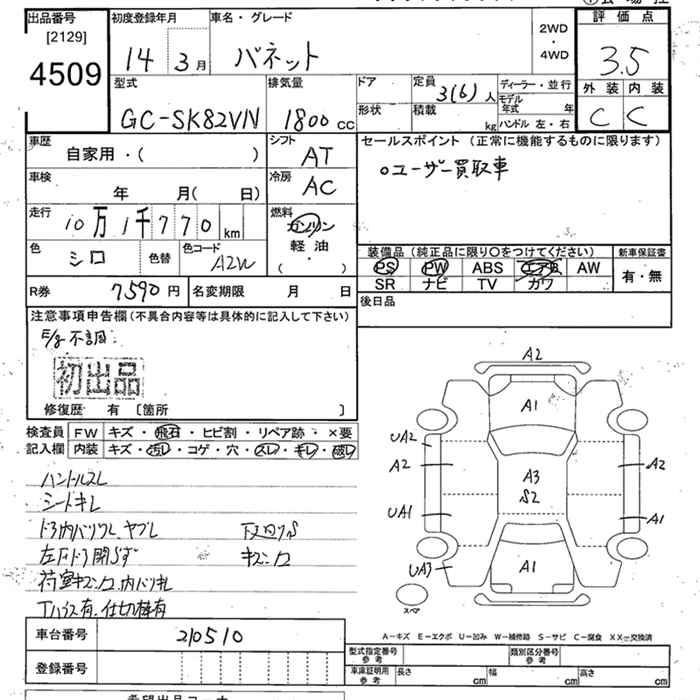 出品番号
[2129]
4509
初度登録年月
14年 3月
車名・グレード
バネット
2WD
・
4WD
評価点
3.5
外装 内装
C C
型式
GC-SK82VN
排気量
1800 CC
ドア
形状
定員
3(6)人
積載
kg
ディーラー・並行
モデル年式 年
ハンドル 左・右
車歴
自家用・( )
シフト
AT
車検
年 月( 日)
冷房
AC
走行
10万1千770 km
燃料
ガソリン
軽油
・
( )
色
シロ
色替
色コード
A2W
セールスポイント (正常に機能するものに限ります)
○ユーザー買取車
装備品 (純正品に限り○をつけてください)
PS PW ABS エアB AW
SR ナビ TV カワ
新車保証書
有・無
R券 7590円
名変期限 月 日
後日品
注意事項申告欄(不具合内容等は具体的に記入して下さい)
E/g不調
初出品
修復歴 有 [箇所 ]
検査員 FW キズ・飛石・ヒビ割・リペア跡・×要
記入欄 内装 キズ・汚レ・コゲ・穴・スレ・キレ・破レ
ハンドルスレ
シートキレ
ドア内バリワレ、ヤブレ
下回りS
左F
キズ
荷室キズ
有.仕切棒有
A2
A1
UA2
A2
A3
S2
A2
UA1
A1
UA3
A1
スペア
A−キズ E−エクボ U−凹み W−補修跡 S−サビ C−腐食 XX−交換済
車台番号 210510
登録番号
型式指定番号
参考
類別区分番号
参考
車庫証明用
参考
長さ cm
幅 cm
高さ cm
希望出品コーナー